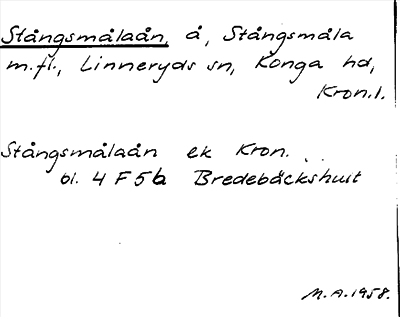 Stångsmålaån, å, Stångsmåla
m.fl., Linneryds sn, Konga hd,
Kron.l.
Stångsmålaån ek Kron.
bl. 4 F 5 b Bredebäckshult
M.A. 1958.